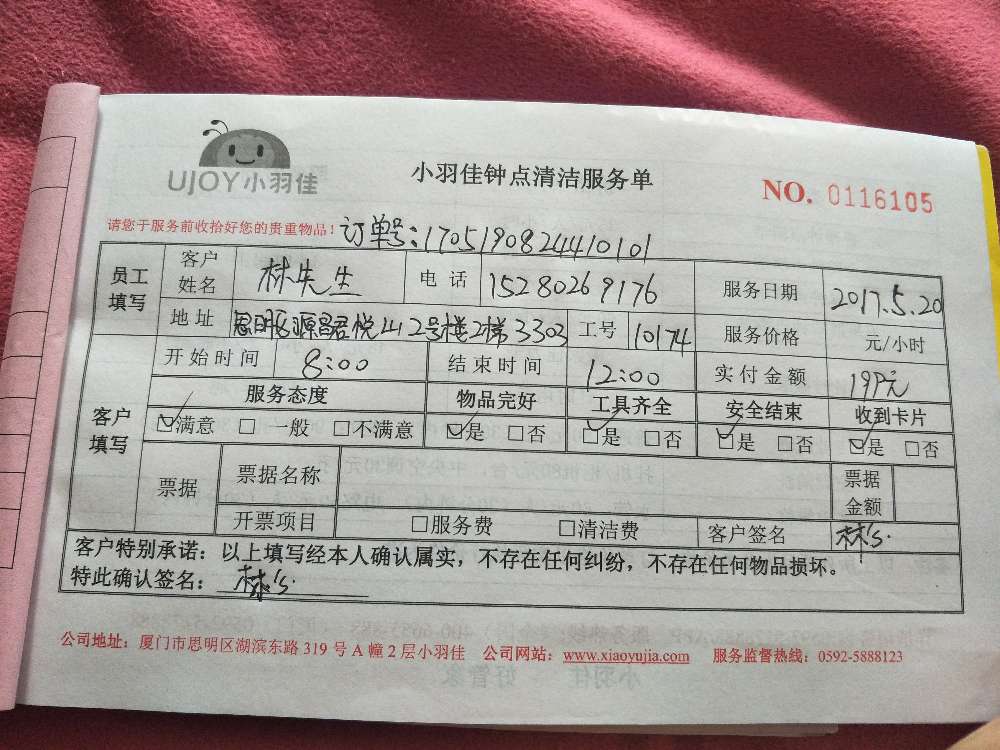 UJOY小羽佳
小羽佳钟点清洁服务单
NO. 0116105
请您于服务前收拾好您的贵重物品！订单号：1705190824410101
员工填写 客户姓名 林先生 电话 15280269176 服务日期 2017.5.20
地址 思明区源昌君悦山2号楼2梯3303 工号 10174 服务价格 元/小时
开始时间 8:00 结束时间 12:00 实付金额 199元
客户填写 服务态度 物品完好 工具齐全 安全结束 收到卡片
☑满意 □一般 □不满意 ☑是 □否 ☑是 □否 ☑是 □否 ☑是 □否
票据 票据名称 票据金额
开票项目 □服务费 □清洁费 客户签名 林's.
客户特别承诺：以上填写经本人确认属实，不存在任何纠纷，不存在任何物品损坏。
特此确认签名： 林's.
公司地址：厦门市思明区湖滨东路 319 号 A 幢 2 层小羽佳 公司网站：www.xiaoyujia.com 服务监督热线：0592-5888123